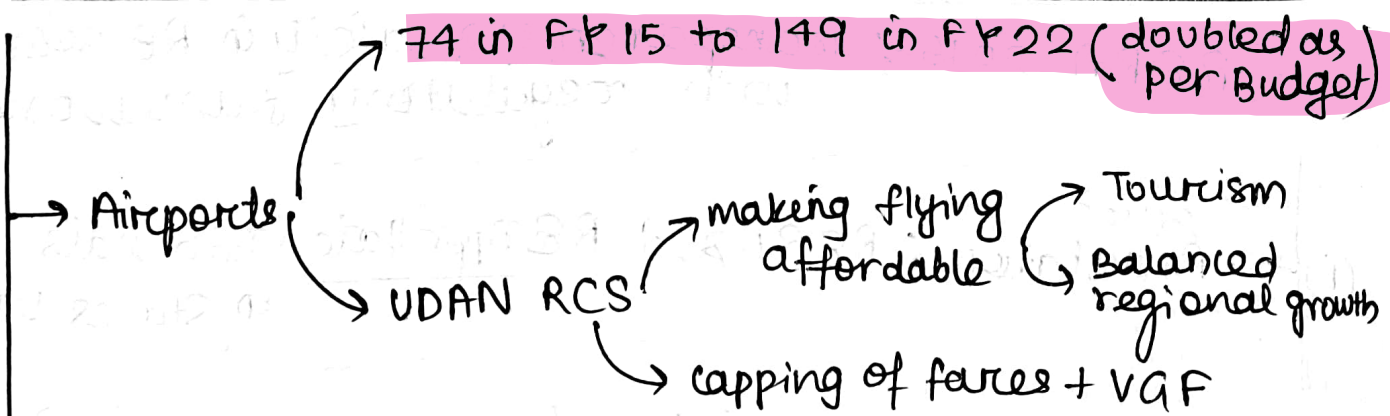 74 in FY 15 to 149 in FY 22 (doubled as
per Budget)
→ Airports
making flying
affordable
Tourism
Balanced
regional growth
UDAN RCS
capping of fares + VGF